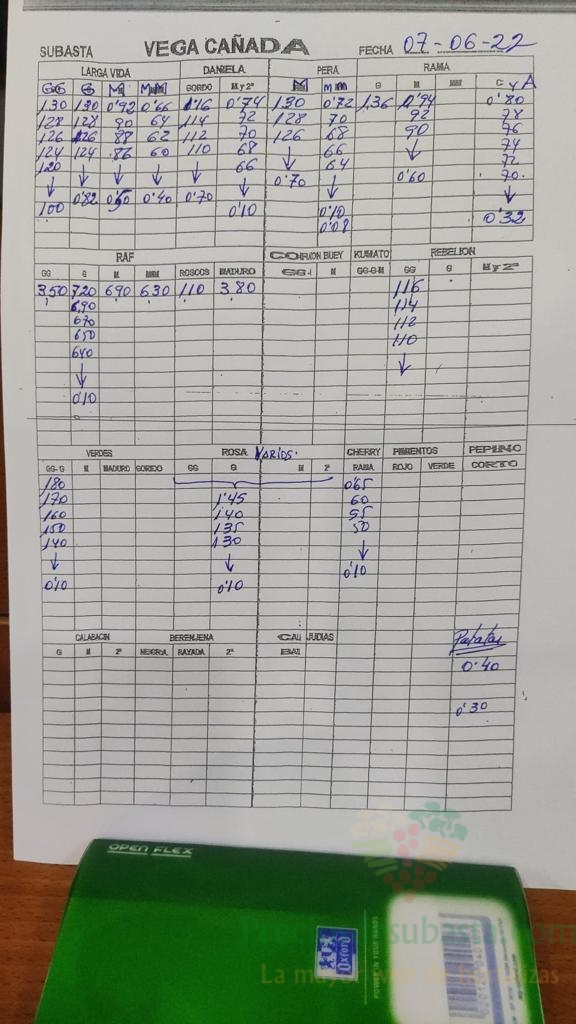 SUBASTA VEGA CAÑADA FECHA 07-06-22
LARGA VIDA DANIELA PERA RAMA
GG G M MM GORDO M y 2ª M mm G M MM C y A
130 130 0'92 0'66 1'16 0'74 130 0'72 136 0'94 0'80
128 128 90 64 114 72 128 70 92 78
126 126 88 62 112 70 126 68 90 76
124 124 86 60 110 68 ↓ 66 ↓ 74
120 ↓ ↓ ↓ ↓ 66 0'70 64 0'60 72
↓ 0'82 0'40 0'70 ↓ ↓ 70
100 0'10 0'10 ↓
0'08 0'32
RAF CORZON BUEY KUMATO REBELION
GG G M MM ROSCOS MADURO GG-I M GG-G-M GG G M y 2ª
350 720 690 630 110 3.80 116
690 114
670 112
650 110
640 ↓
↓
0'10
VERDES ROSA Varios. CHERRY PIMIENTOS PEPINO
GG-G M MADURO GORDO GG G M 2ª RAMA ROJO VERDE CORTO
180 0'65
170 1'45 60
160 140 55
150 135 50
140 130 ↓
↓ ↓ 0'10
0'10 0'10
CALABACIN BERENJENA JUDIAS Patatas
G M 2ª NEGRA RAYADA 2ª
0'40
0'30
OPEN FLEX
Oxford
POWER IN YOUR HANDS
subasta.com